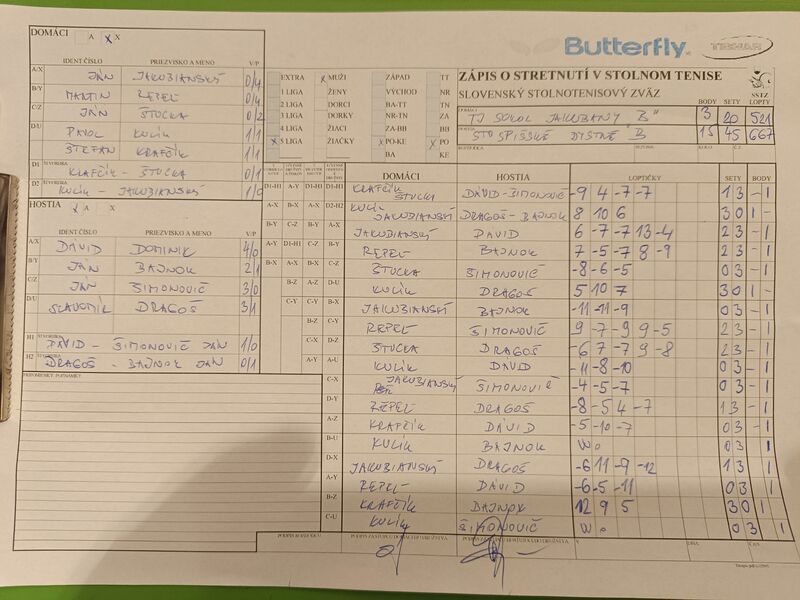 DOMÁCI A X X
IDENT ČÍSLO PRIEZVISKO A MENO V/P
A/X JÁN JAKUBIANSKÝ 0/4
B/Y MARTIN REPEL 0/4
C/Z JÁN ŠTUCKA 0/2
D/U PAVOL KULÍK 1/1
ŠTEFAN KRAFČÍK 1/1
D1 ŠTVORHRA KRAFČÍK - ŠTUCKA 0/1
D2 ŠTVORHRA KULÍK - JAKUBIANSKÝ 1/0
HOSTIA X A X
IDENT ČÍSLO PRIEZVISKO A MENO V/P
A/X DÁVID DOMINIK 4/0
B/Y JÁN BAJNOK 2/1
C/Z JÁN ŠIMONOVIČ 3/0
D/U SLAVOMÍR DRAGOŠ 3/1
H1 ŠTVORHRA DÁVID - ŠIMONOVIČ JÁN 1/0
H2 ŠTVORHRA DRAGOŠ - BAJNOK JÁN 0/1
PRIPOMIENKY, POZNÁMKY
Butterfly
TIBHAR
EXTRA X MUŽI ZÁPAD TT
1 LIGA ŽENY VÝCHOD NR
2 LIGA DORCI BA-TT TN
3 LIGA DORKY NR-TN ZA
4 LIGA ŽIACI ZA-BB BB
X 5 LIGA ŽIAČKY PO-KE X PO
BA KE
ZÁPIS O STRETNUTÍ V STOLNOM TENISE
SLOVENSKÝ STOLNOTENISOVÝ ZVÄZ
SSTZ
BODY SETY LOPTY
DOMÁCI TJ SOKOL JAKUBANY "B" 3 20 521
HOSTIA STO SPIŠSKÉ BYSTRÉ "B" 15 45 667
DOMÁCI HOSTIA LOPTIČKY SETY BODY
D1-H1 A-Y D1-H1 D1-H1 KRAFČÍK ŠTUCKA DÁVID-ŠIMONOVIČ -9 4 -7 -7 1 3 - 1
A-X B-X A-X D2-H2 KULÍK JAKUBIANSKÝ DRAGOŠ-BAJNOK 8 10 6 3 0 1 -
B-Y C-Z B-Y A-X JAKUBIANSKÝ DÁVID 6 -7 -7 13 -4 2 3 - 1
A-Y D1-H1 C-Z B-Y REPEL BAJNOK 7 -5 -7 8 -9 2 3 - 1
B-X A-X B-X C-Z ŠTUCKA ŠIMONOVIČ -8 -6 -5 0 3 - 1
B-Z A-Z D-U KULÍK DRAGOŠ 5 10 7 3 0 1 -
C-Y B-X JAKUBIANSKÝ BAJNOK -11 -11 -9 0 3 - 1
B-Z C-Y REPEL ŠIMONOVIČ 9 -7 -9 9 -5 2 3 - 1
C-X D-Z ŠTUCKA DRAGOŠ -6 7 -7 9 -8 2 3 - 1
A-Y A-U KULÍK DÁVID -11 -8 -10 0 3 - 1
C-X JAKUBIANSKÝ ŠIMONOVIČ -4 -5 -7 0 3 - 1
D-Y REPEL DRAGOŠ -8 -5 4 -7 1 3 - 1
A-Z KRAFČÍK DÁVID -5 -10 -7 0 3 - 1
B-U KULÍK BAJNOK wo 0 3 1
D-X JAKUBIANSKÝ DRAGOŠ -6 11 -9 -12 1 3 1
A-Y REPEL DÁVID -6 -5 -11 0 3 1
B-Z KRAFČÍK BAJNOK 12 9 5 3 0 1
C-U KULÍK ŠIMONOVIČ wo 0 3 1